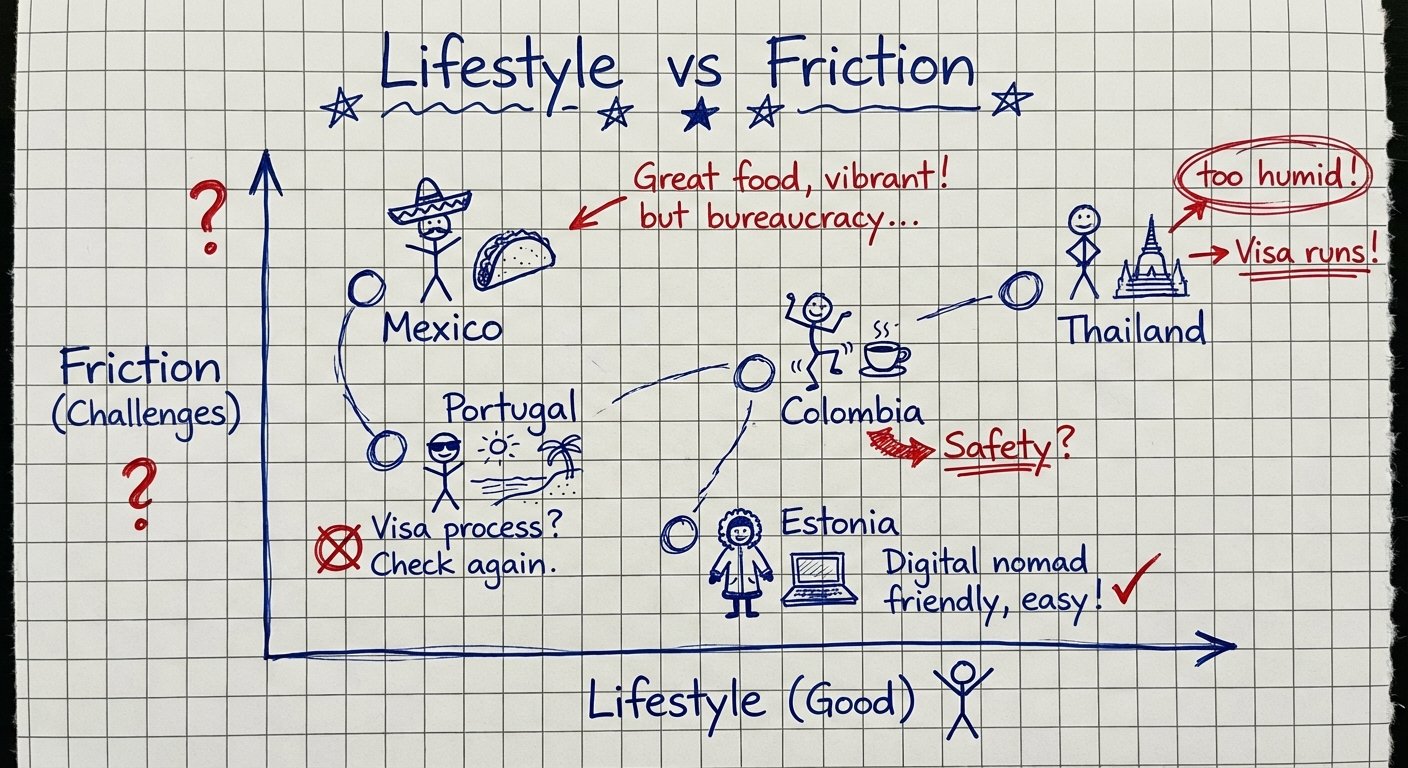 Lifestyle vs Friction
?
Great food, vibrant!
but bureaucracy...
too humid!
Visa runs!
Mexico
Thailand
Friction
(Challenges)
?
Portugal
Colombia
Safety?
Visa process?
Check again.
Estonia
Digital nomad
friendly, easy!
Lifestyle (Good)